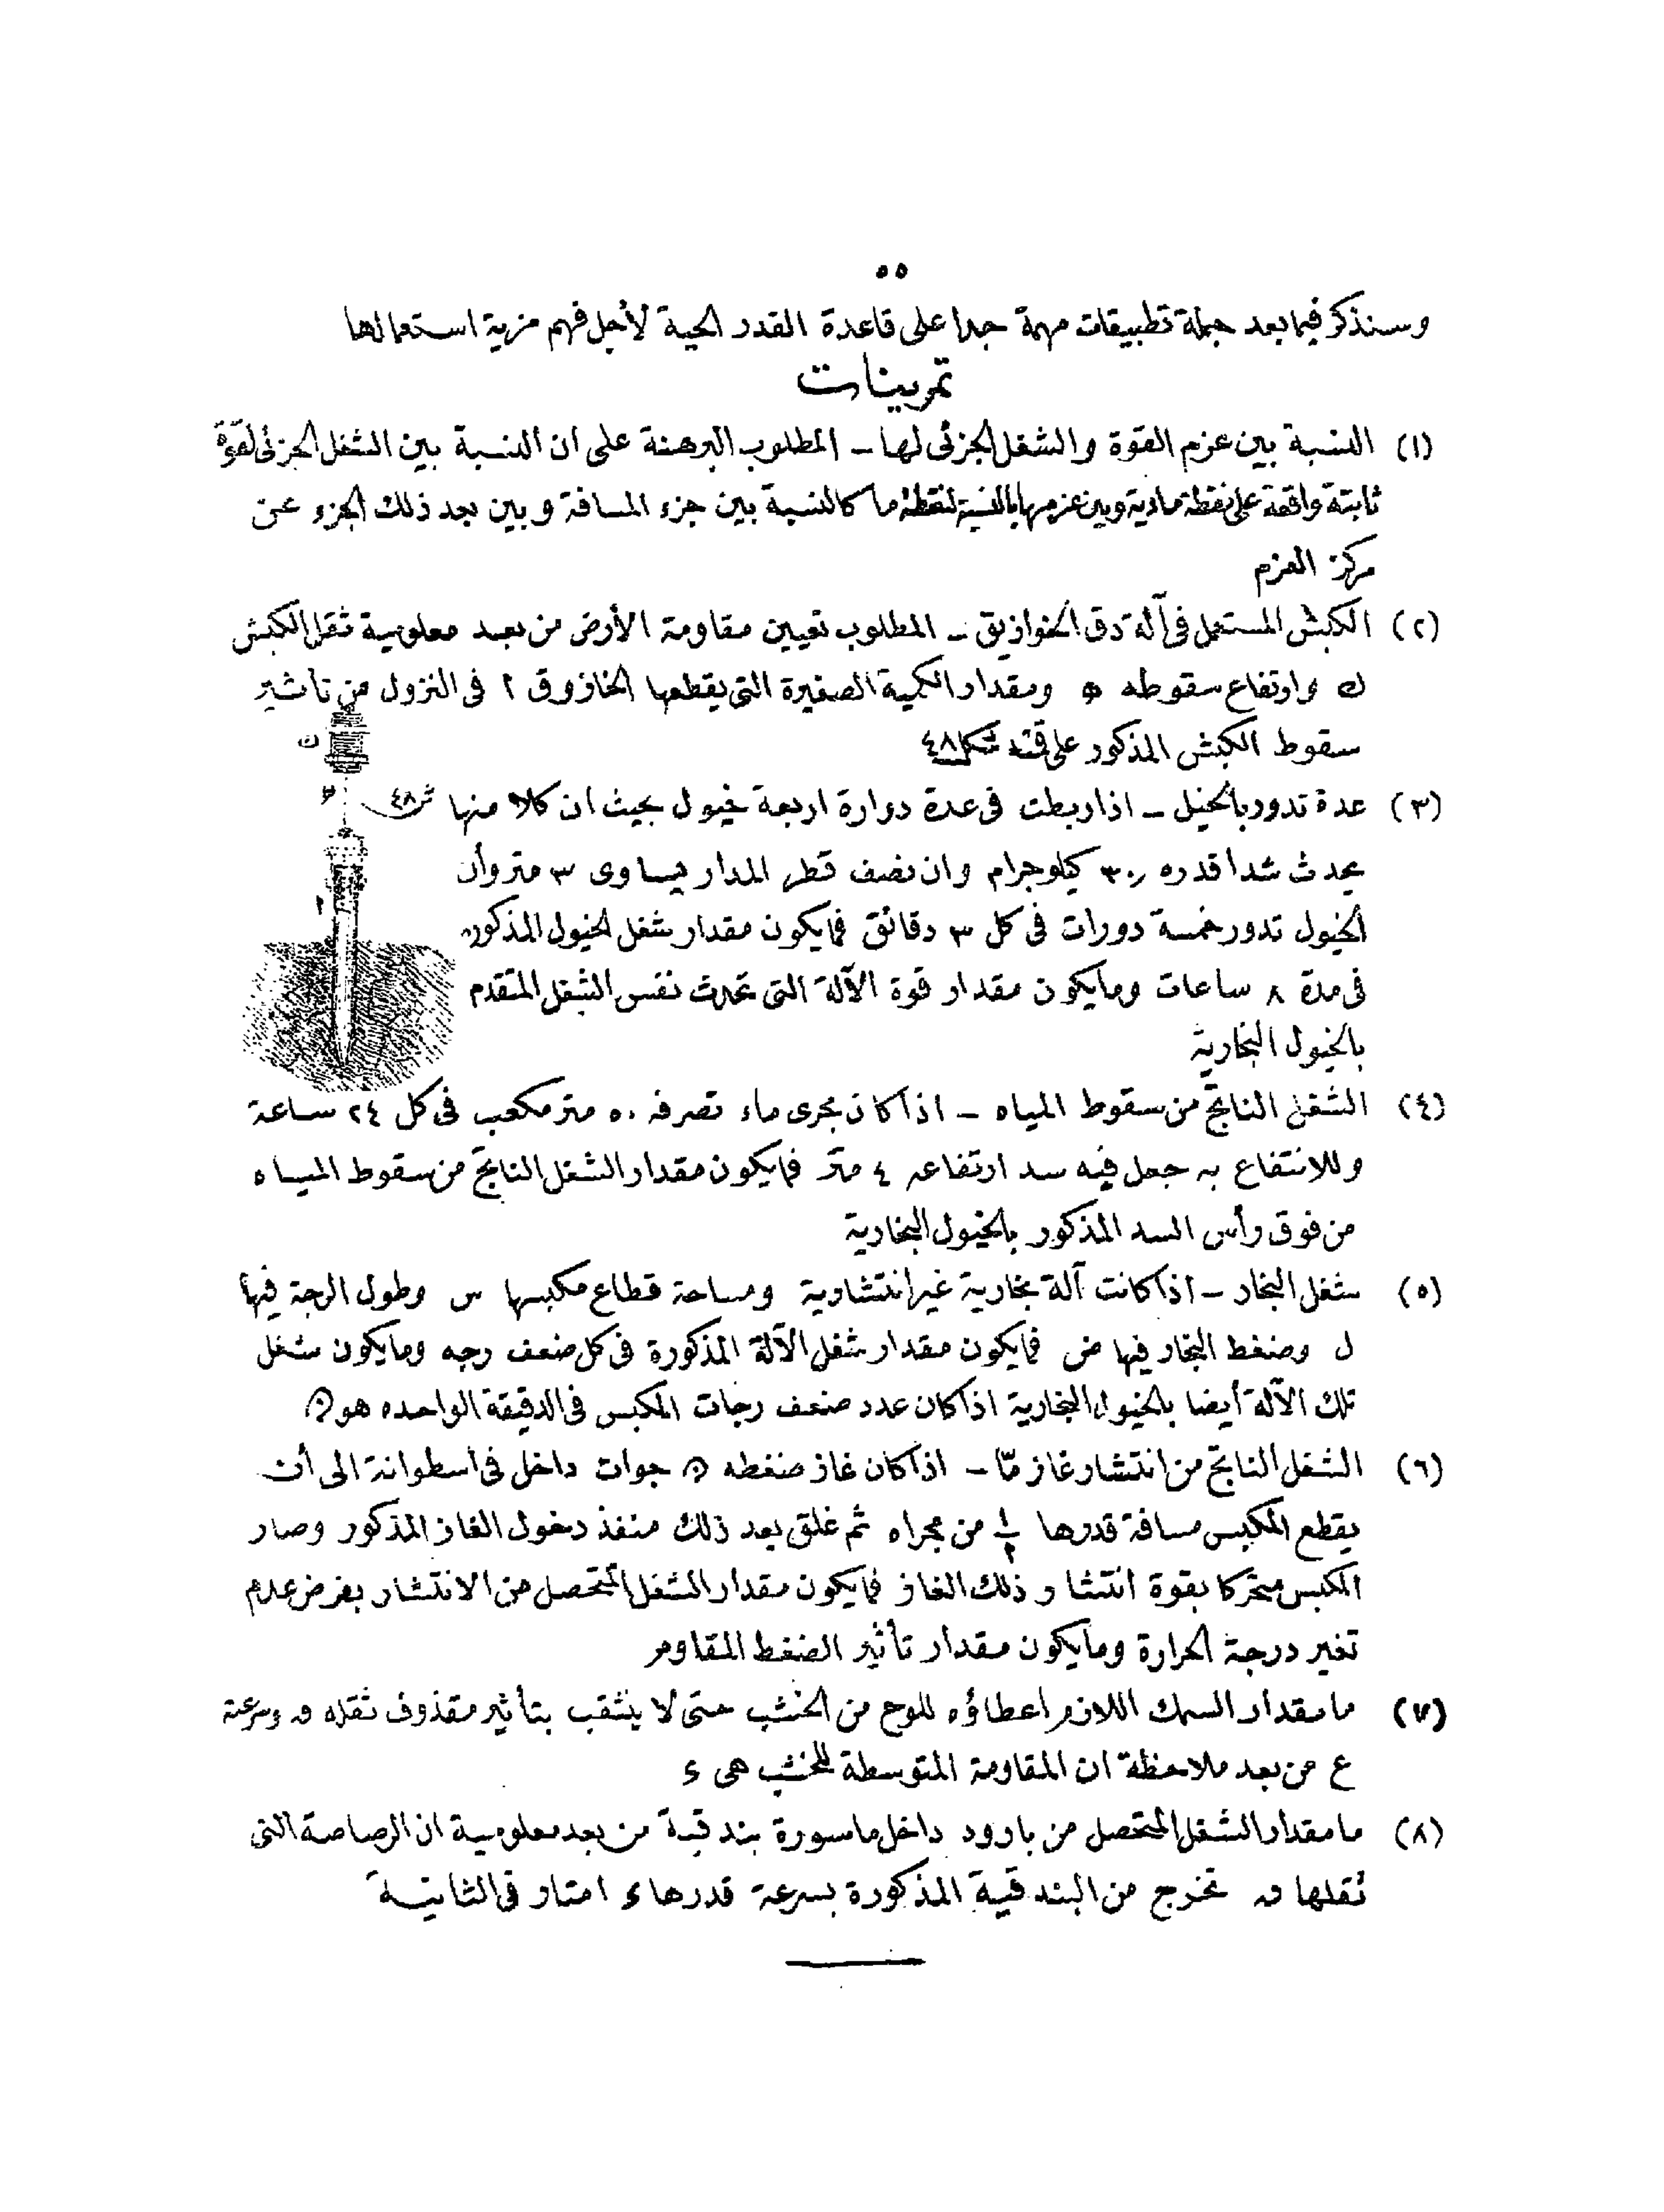 ٥٥
وسنذكر فيما بعد جملة تطبيقات مهمة جدا على قاعدة القدر الحية لأجل فهم مزية استعمالها
تمرينات
(١) النسبة بين عزم القوة والشغل الجزئى لها ـ المطلوب البرهنة على ان النسبة بين الشغل الجزئى لقوة
ثابتة واقعة على نقطة مادية وبين عزمها بالنسبة لنقطة ما كالنسبة بين جزء المسافة وبين بعد ذلك الجزء عن
مركز العزم
(٢) الكبش المستعمل فى آلة دق الخوازيق ـ المطلوب تعيين مقاومة الأرض من بعد معلومية ثقل الكبش
ك وارتفاع سقوطه ومقدار الكمية الصغيرة التى يقطعها الخازوق ا فى النزول من تاثير
سقوط الكبش المذكور على قمته شكل ٤٨
ك
ش ٤٨
ا
(٣) عدة تدور بالخيل ـ اذا ربطت فى عدة دوارة اربعة خيول بحيث ان كلا منها
يحدث شدا قدره ٣٠ كيلوجرام وان نصف قطر المدار يساوى ٣ متر وأن
الخيول تدور خمسة دورات فى كل ٣ دقائق فما يكون مقدار شغل الخيول المذكوره
فى مدة ٨ ساعات وما يكون مقدار قوة الآلة التى تحدث نفس الشغل المتقدم
بالخيول البخارية
(٤) الشغل الناتج من سقوط المياه ـ اذا كان مجرى ماء تصرفه ٥٠ متر مكعب فى كل ٢٤ ساعة
وللانتفاع به جعل فيه سد ارتفاعه ٤ متر فما يكون مقدار الشغل الناتج من سقوط المياه
من فوق رأس السد المذكور بالخيول البخارية
(٥) شغل البخار ـ اذا كانت آلة بخارية غير انتشارية ومساحة قطاع مكبسها س وطول الرجة فيها
ل وضغط البخار فيها ض فما يكون مقدار شغل الآلة المذكورة فى كل ضعف رجه وما يكون شغل
تلك الآلة أيضا بالخيول البخارية اذا كان عدد ضعف رجات المكبس فى الدقيقة الواحده هو ن
(٦) الشغل الناتج من انتشار غاز مّا ـ اذا كان غاز ضغطه ن جوات داخل فى اسطوانة الى أن
يقطع المكبس مسافة قدرها ١/٢ من مجراه ثم غلق بعد ذلك منفذ دخول الغاز المذكور وصار
المكبس متحركا بقوة انتشار ذلك الغاز فما يكون مقدار الشغل المتحصل من الانتشار بفرض عدم
تغير درجة الحرارة وما يكون مقدار تأثير الضغط المقاوم
(٧) ما مقدار السمك اللازم اعطاؤه للوح من الخشب حتى لا ينثقب بتأثير مقذوف ثقله و وسرعته
ع من بعد ملاحظة ان المقاومة المتوسطة للخشب هى ء
(٨) ما مقدار الشغل المتحصل من بارود داخل ماسورة بندقية من بعد معلومية ان الرصاصة التى
ثقلها و تخرج من البندقية المذكورة بسرعة قدرها ء امتار فى الثانية